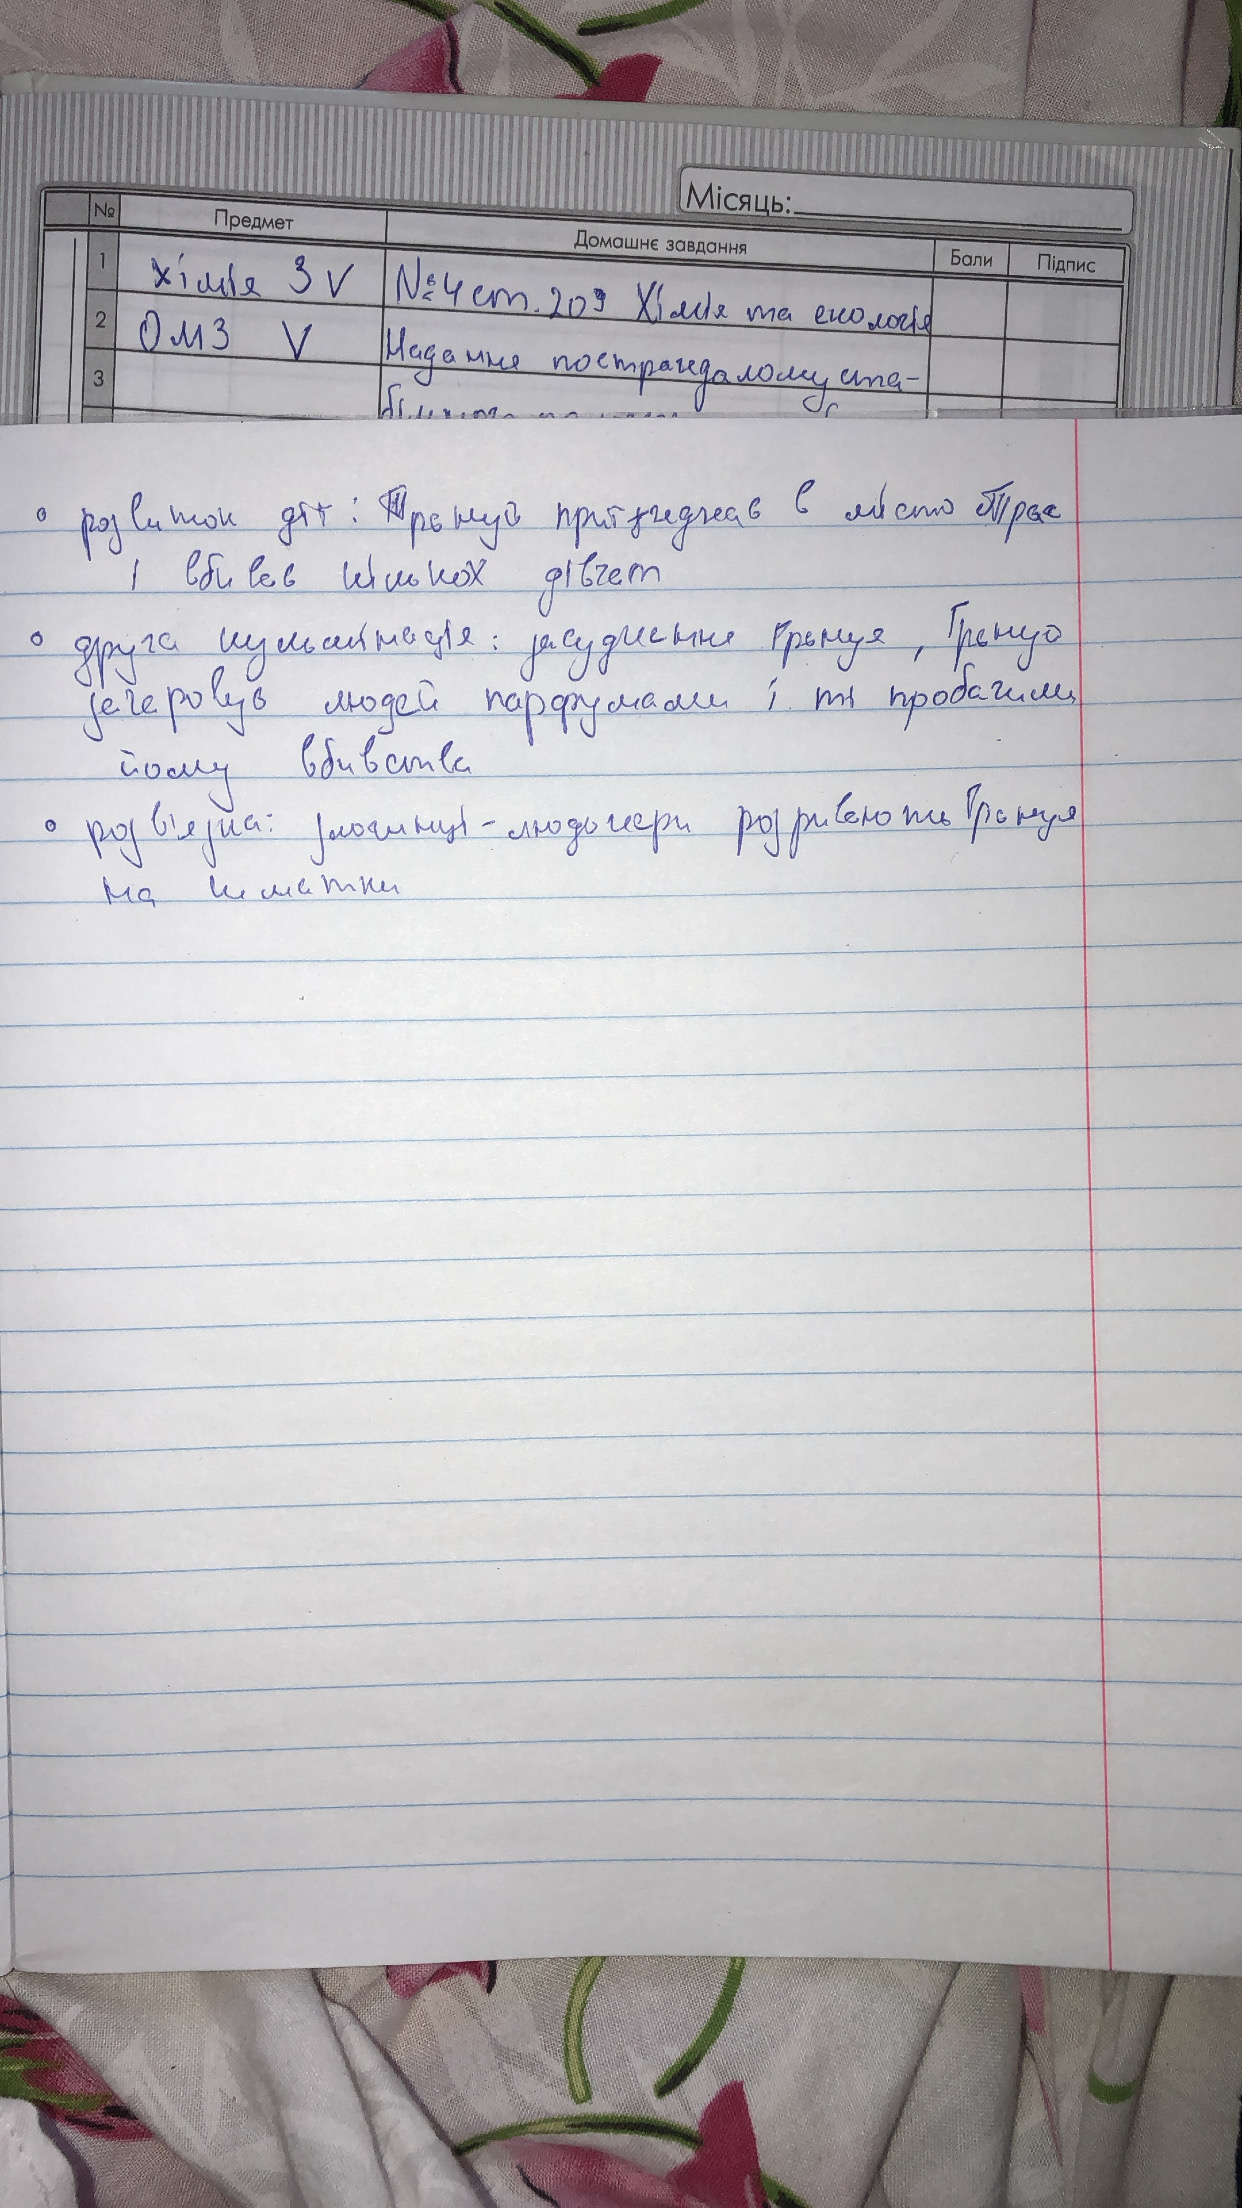 Місяць:
№ Предмет Домашнє завдання Бали Підпис
1 Хімія З V №4 ст. 209 Хімія та екологія
2 ОМЗ V Надання постраждалому ста-
3
розвиток дії: Гренуй приїжджає в місто Грас
і вбиває кількох дівчат
друга кульмінація: засудження Гренуя, Гренуй
зачаровує людей парфумами і ті пробачили
йому вбивства
розв'язка: злочинці-людожери розривають Гренуя
на шматки